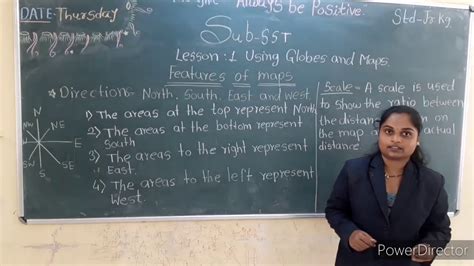 Always be Positive
DATE: Thursday
Std-Jr Kg
Sub-SST
Lesson:1 Using Globes and Maps
Features of maps
Direction- North, South, East and west
1) The areas at the top represent North
2) The areas at the bottom represent
South
3) The areas to the right represent
East.
4) The areas to the left represent
West.
N
NE
E
SE
S
SW
W
Scale- A scale is used
to show the ratio between
the distance on
the map actual
distance.
PowerDirector